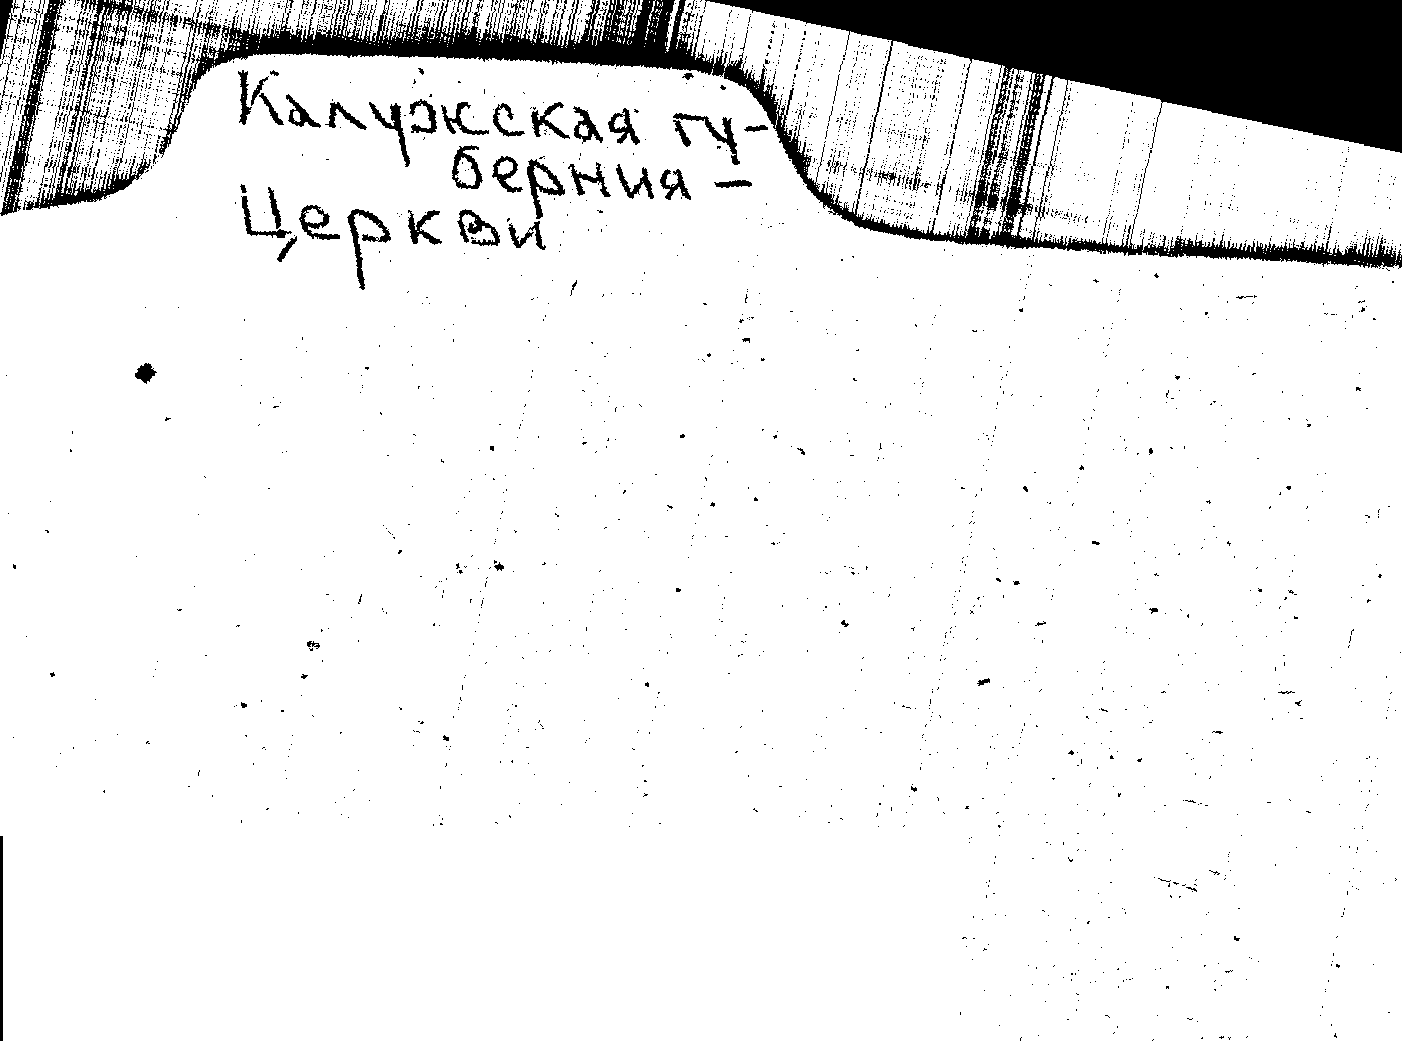 Калужская гу-
берния –
Церкви